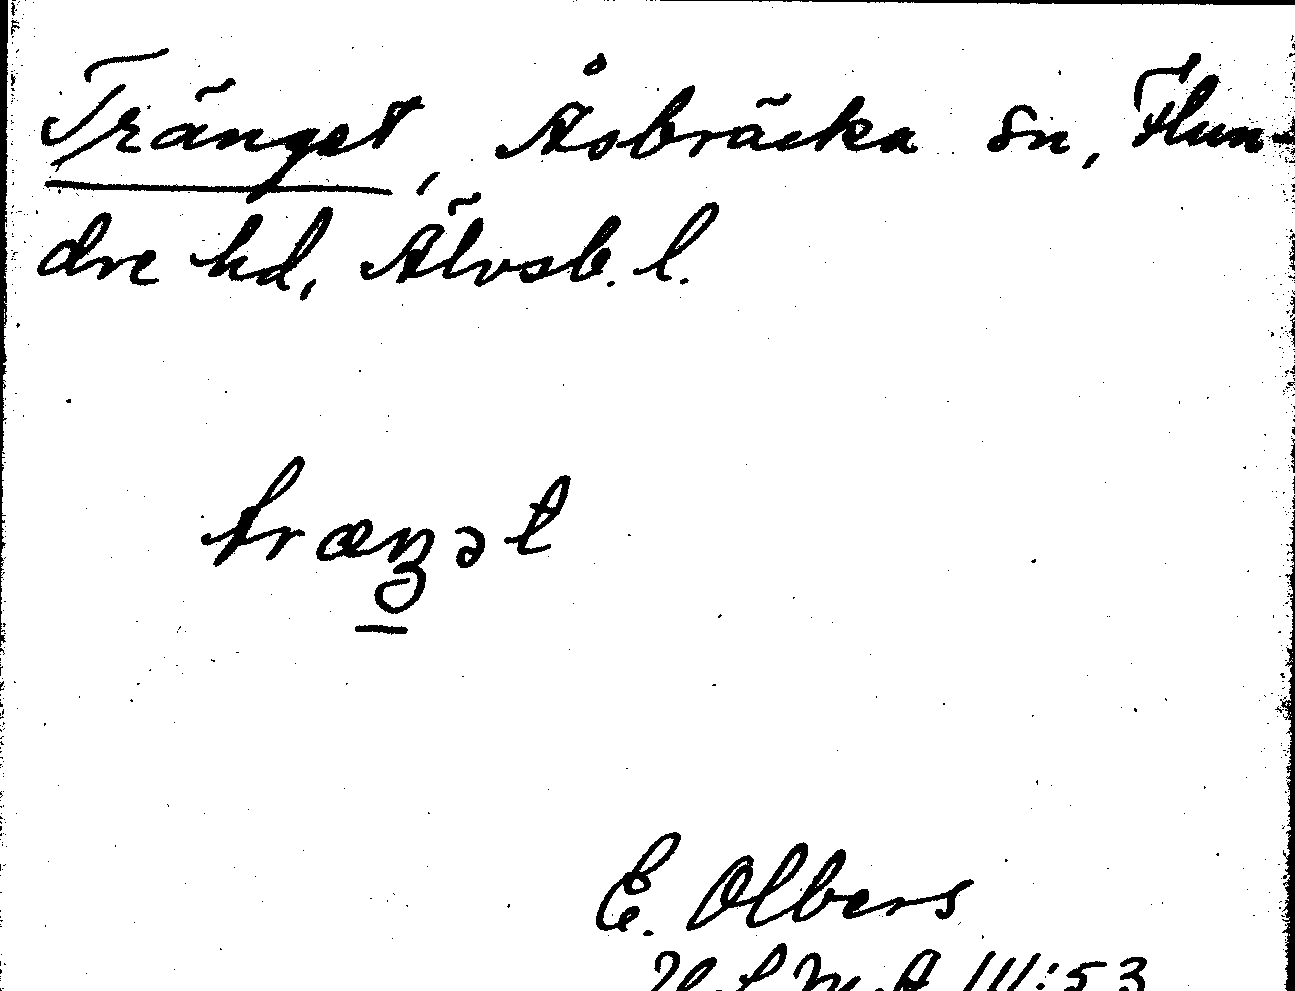 Tränget, Åsbräcka sn, Flun-
dre hd, Älvsb. l.
træŋət
E. Olbers
III:53